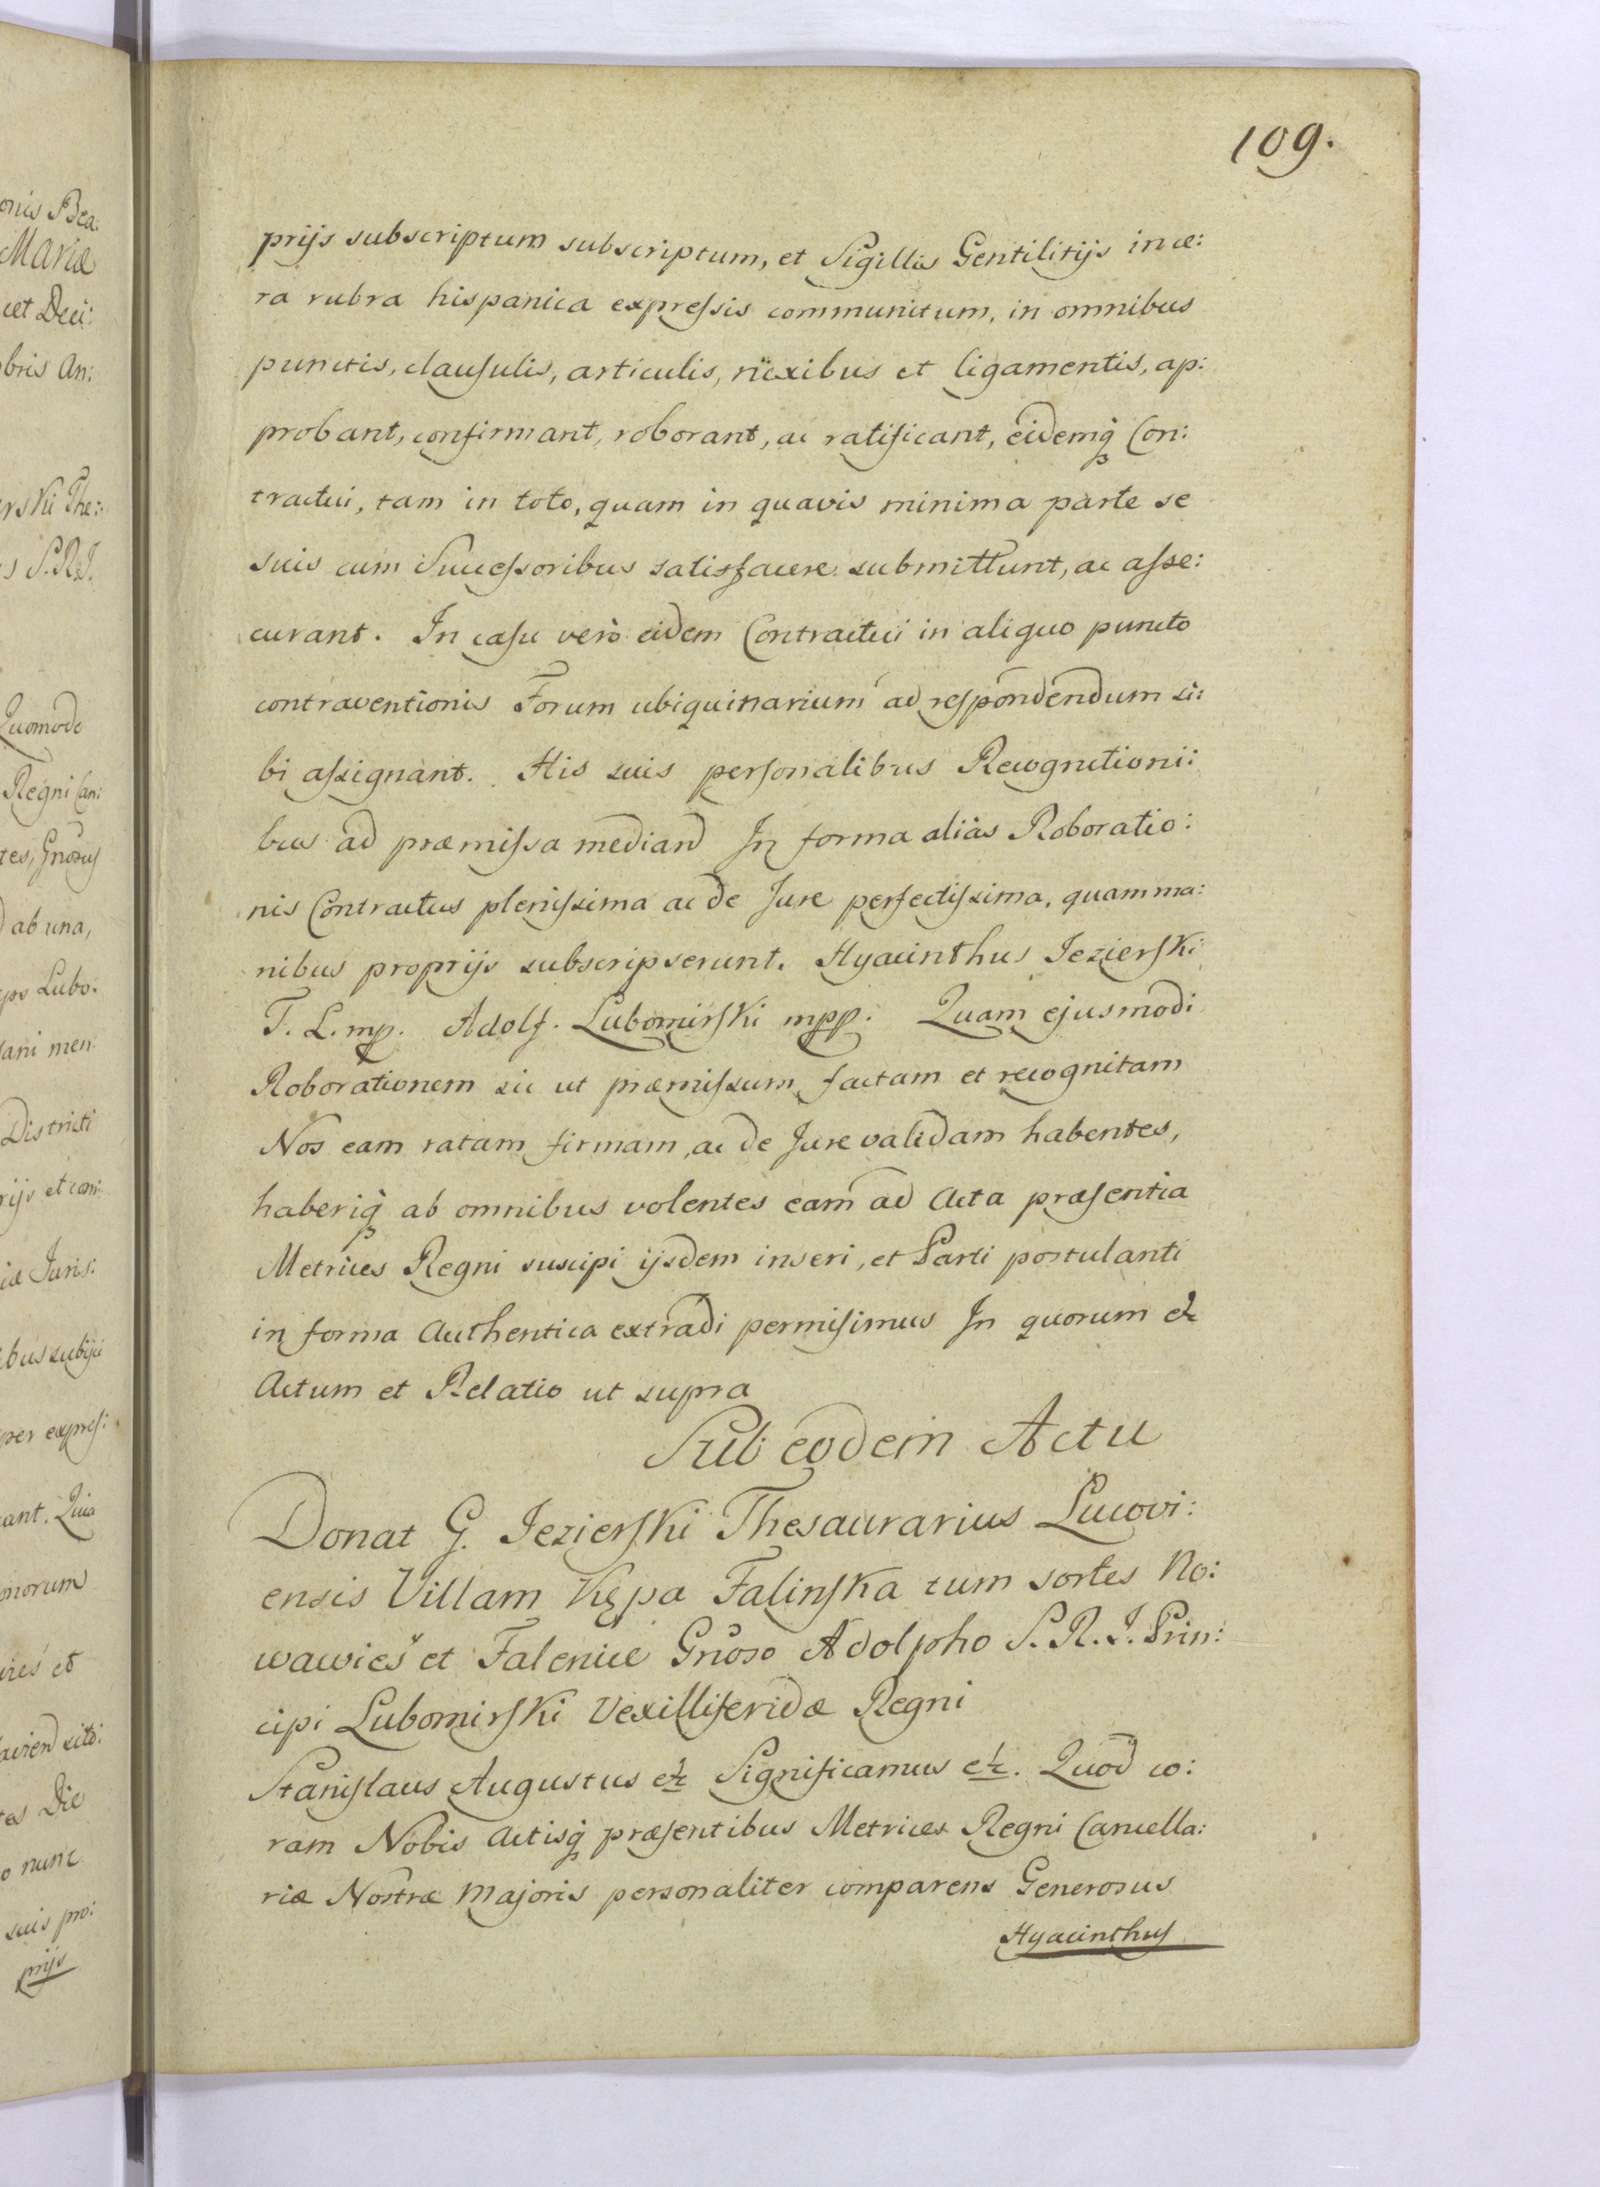 109.
prijs subscriptum subscriptum, et Sigillis Gentilitijs in ce:
ra rubra hispanica expreſsis communitum, in omnibus
punctis, clauſulis, articulis, nexibus et ligamentis, ap:
probant, confirmant, roborant, ac ratificant, eidemq̃ Con:
tractui, tam in toto, quam in quavis minima parte se
suis cum Succeſsoribus satisfacere submittunt, ac aſse:
curant. In caſu verò eidem Contractui in aliquo puncto
contraventionis Forum ubiquinarium ad reſpondendum si:
bi aſsignant. His suis perſonalibus Recognitioni:
bus ad præmiſsa mediand In forma aliàs Roboratio:
nis Contractus pleniſsima ac de Jure perfectiſsima, quam ma:
nibus proprijs subscripserunt. Hyacinthus Jezierſki
T. L. mp. Adolf. Lubomirſki mpp. Quam ejusmodi
Roborationem sic ut præmiſsum factam et recognitam
Nos eam ratam firmam, ac de Jure validam habentes,
haberiq̃ ab omnibus volentes eam ad Acta præſentia
Metrices Regni suscipi ijsdem inseri, et Parti postulanti
in forma Authentica extradi permiſimus In quorum etc
Actum et Relatio ut supra
Sub eodem Actu
Donat G. Jezierſki Thesaurarius Lucovi:
ensis Villam Kępa Falinſka tum sortes No:
wawieś et Falenice Gnoso Adolpho S. R. J. Prin:
cipi Lubomirſki Vexilliferidæ Regni
Staniſlaus Augustus etc Significamus etc. Quod co:
ram Nobis Actisq̃ præſentibus Metrices Regni Cancella:
riæ Nostræ Majoris personaliter comparens Generosus
Hyacinthuſ
onis Bea:
Mariæ
cet Deci:
bris An:
Quomodo
Regni Can:
ab una,
Lubo:
Districti
Juris:
ant. Quia
Die
o nunc
suis pro:
prijs